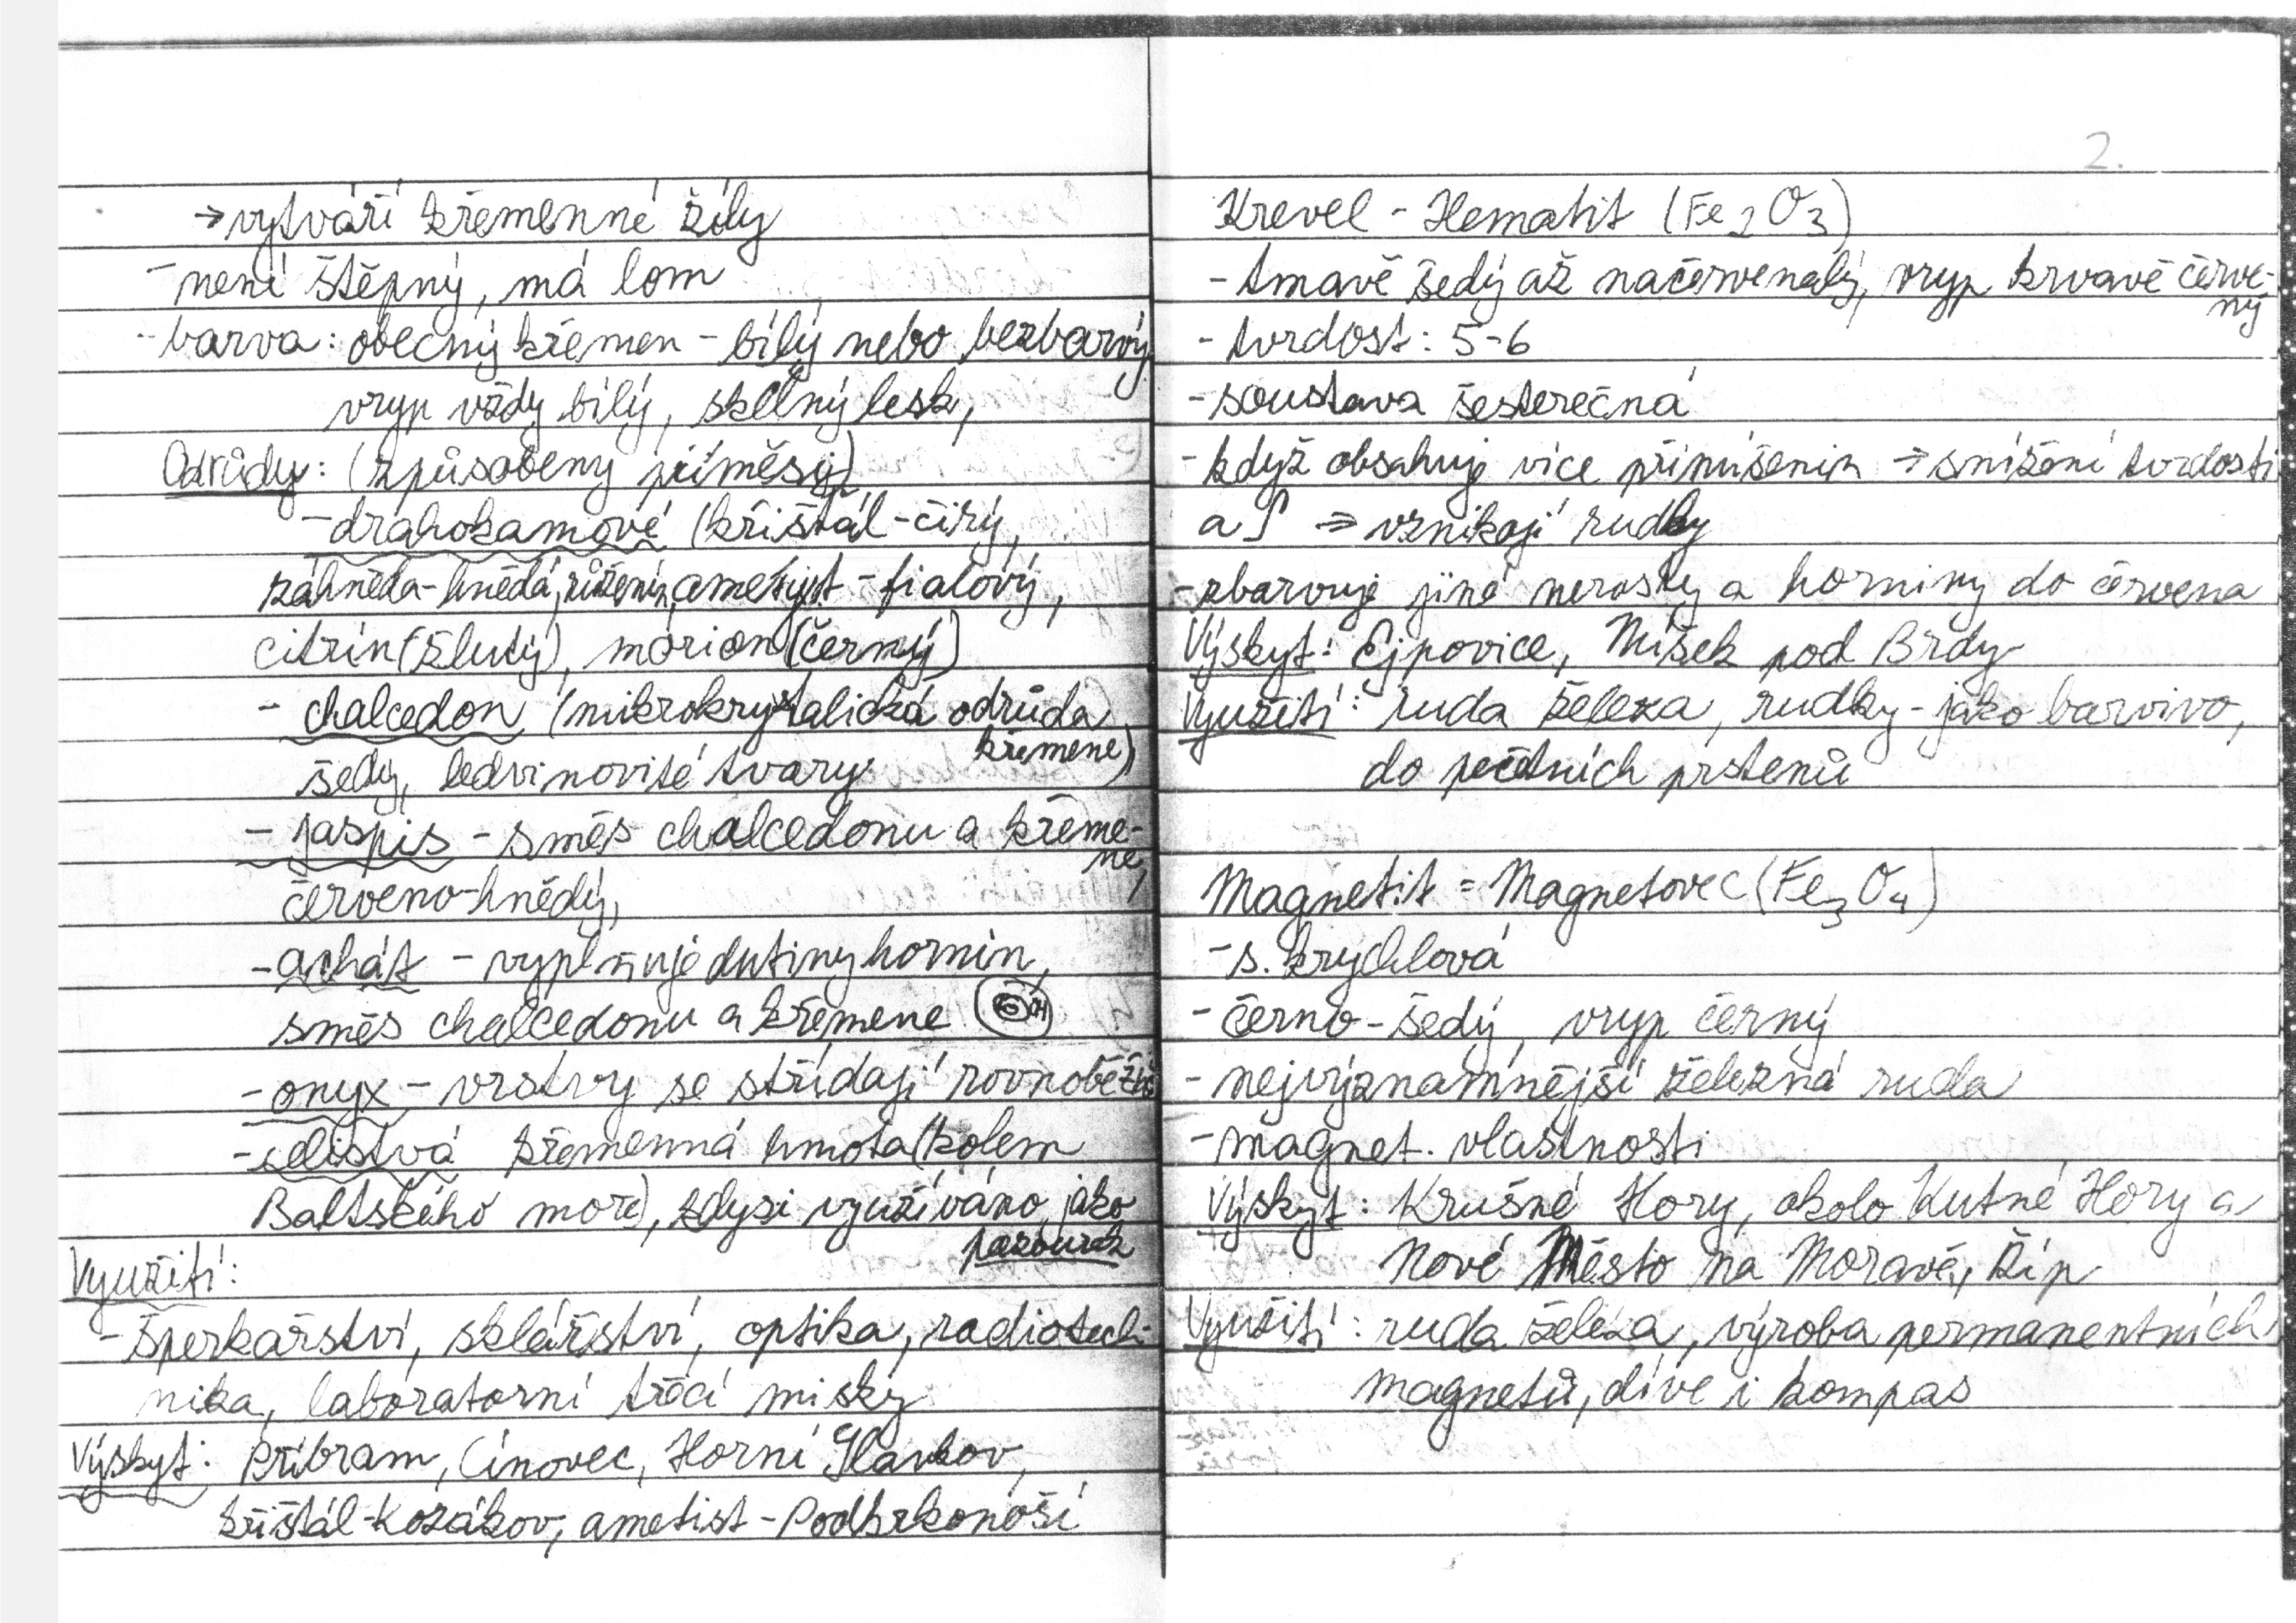 → vytváří křemenné žíly
- není štěpný, má lom
- barva: obecný křemen - bílý nebo bezbarvý
vryp vždy bílý, skelný lesk,
Odrůdy: (způsobeny příměsý)
- drahokamové (křišťál - čirý,
záhněda - hnědá, růženín, ametyst - fialový,
citrín (žlutý), morion (černý)
- chalcedon (mikrokrystalická odrůda
křemene)
šedý, ledvinovité tvary
- jaspis - směs chalcedonu a křeme-
ne,
červeno-hnědý,
- achát - vyplňuje dutiny hornin,
směs chalcedonu a křemene
- onyx - vrstvy se střídají rovnoběžně
křemenná hmota (kolem
Baltského moře), kdysi využíváno jako
pazourek
Využití:
- šperkařství, sklářství, optika, radiotech-
nika, laboratorní třecí misky
Výskyt: Příbram, Cínovec, Horní Slavkov,
křišťál - Kozákov, ametist - Podkrkonoší
2.
Krevel - Hematit (Fe2O3)
- tmavě šedý až načervenalý, vryp krvavě červe-
ný
- tvrdost: 5-6
- soustava šesterečná
- když obsahuje více přimíšenin → snížení tvrdosti
a ρ ⇒ vznikají rudky
- zbarvuje jiné nerosty a horniny do červena
Výskyt: Ejpovice, Mníšek pod Brdy
Využití: ruda železa, rudky - jako barvivo,
do pečetních prstenů
Magnetit = Magnetovec (Fe3O4)
- s. krychlová
- černo-šedý, vryp černý
- nejvýznamnější železná ruda
- magnet. vlastnosti
Výskyt: Krušné Hory, okolo Kutné Hory a
Nové Město na Moravě, Říp
Využití: ruda železa, výroba permanentních
magnetů, díve i kompas